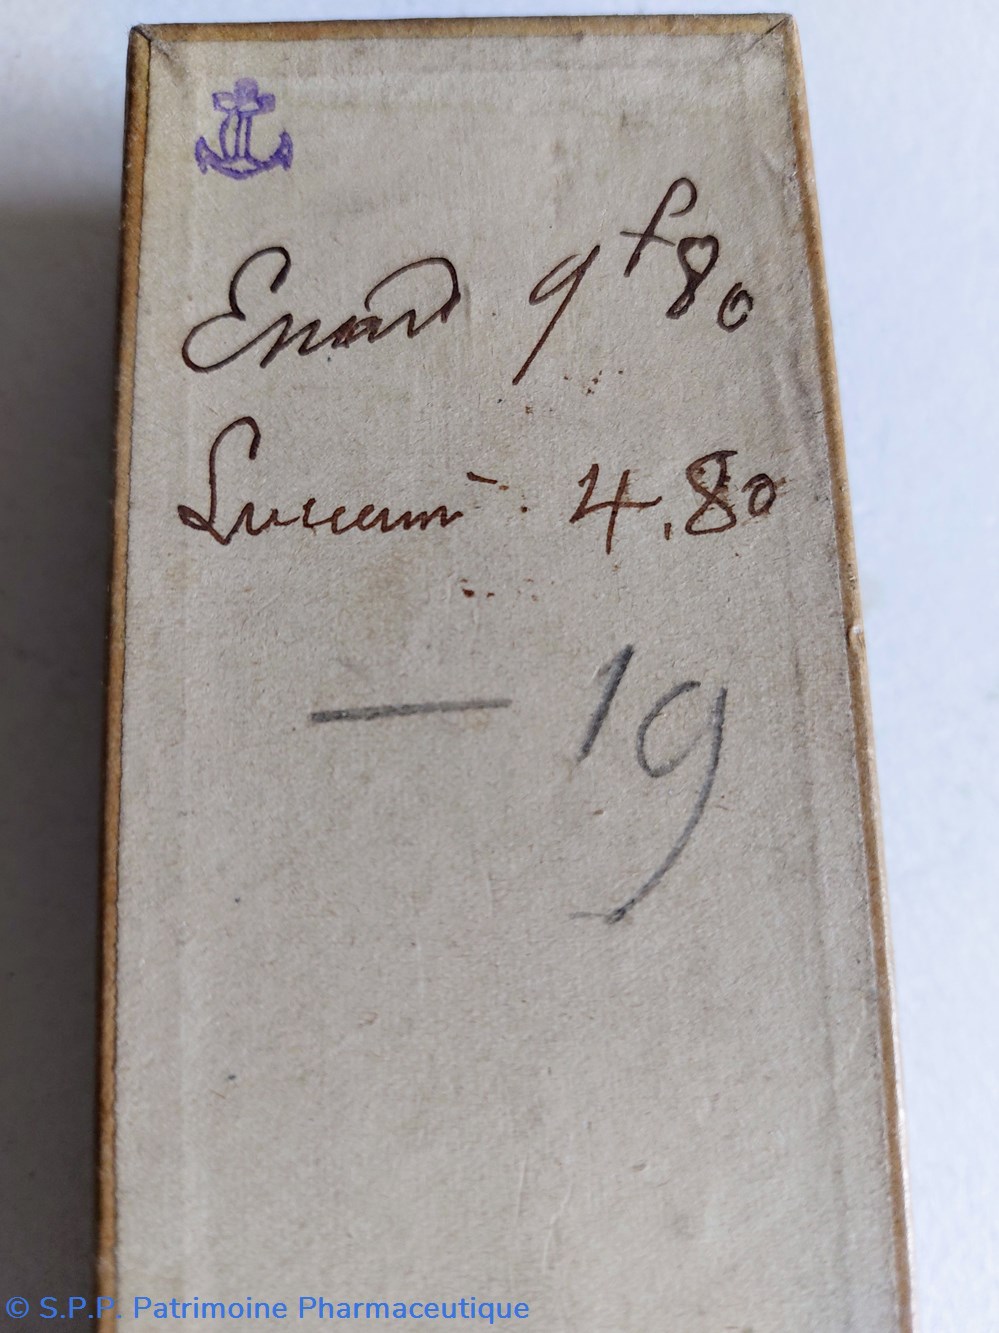 Enard 9f80
4,80
— 19
© S.P.P. Patrimoine Pharmaceutique